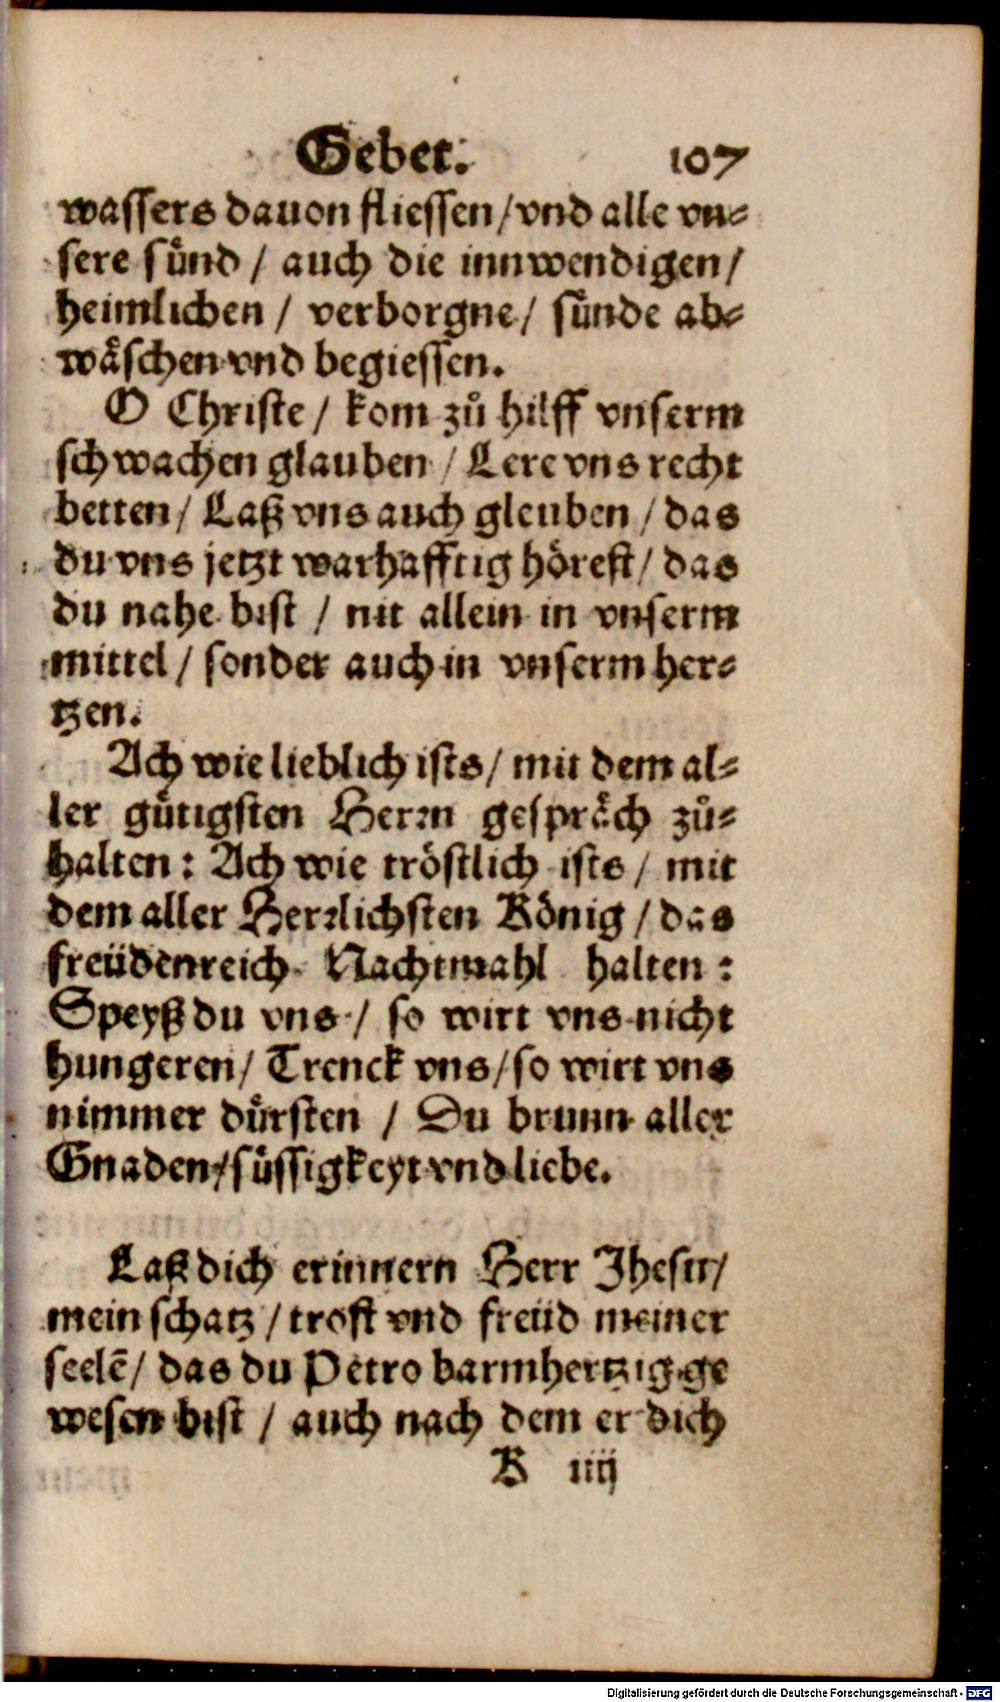 Gebet. 107
wassers dauon fliessen / vnd alle vn-
sere sünd / auch die innwendigen /
heimlichen / verborgne / sünde ab-
wäschen vnd begiessen.
O Christe / kom zů hilff vnserm
schwachen glauben / Lere vns recht
betten / Laß vns auch gleuben / das
du vns jetzt warhafftig hörest / das
du nahe bist / nit allein in vnserm
mittel / sonder auch in vnserm her-
tzen.
Ach wie lieblich ists / mit dem al-
ler gütigsten Herrn gespräch zů-
halten : Ach wie tröstlich ists / mit
dem aller Herrlichsten König / das
freüdenreich Nachtmahl halten :
Speyß du vns / so wirt vns nicht
hungeren / Trenck vns / so wirt vns
nimmer dürsten / Du brunn aller
Gnaden / süssigkeyt vnd liebe.
Laß dich erinnern Herr Jhesu /
mein schatz / trost vnd freüd meiner
seelē / das du Petro barmhertzig ge
wesen bist / auch nach dem er dich
K iiij
Digitalisierung gefördert durch die Deutsche Forschungsgemeinschaft - DFG